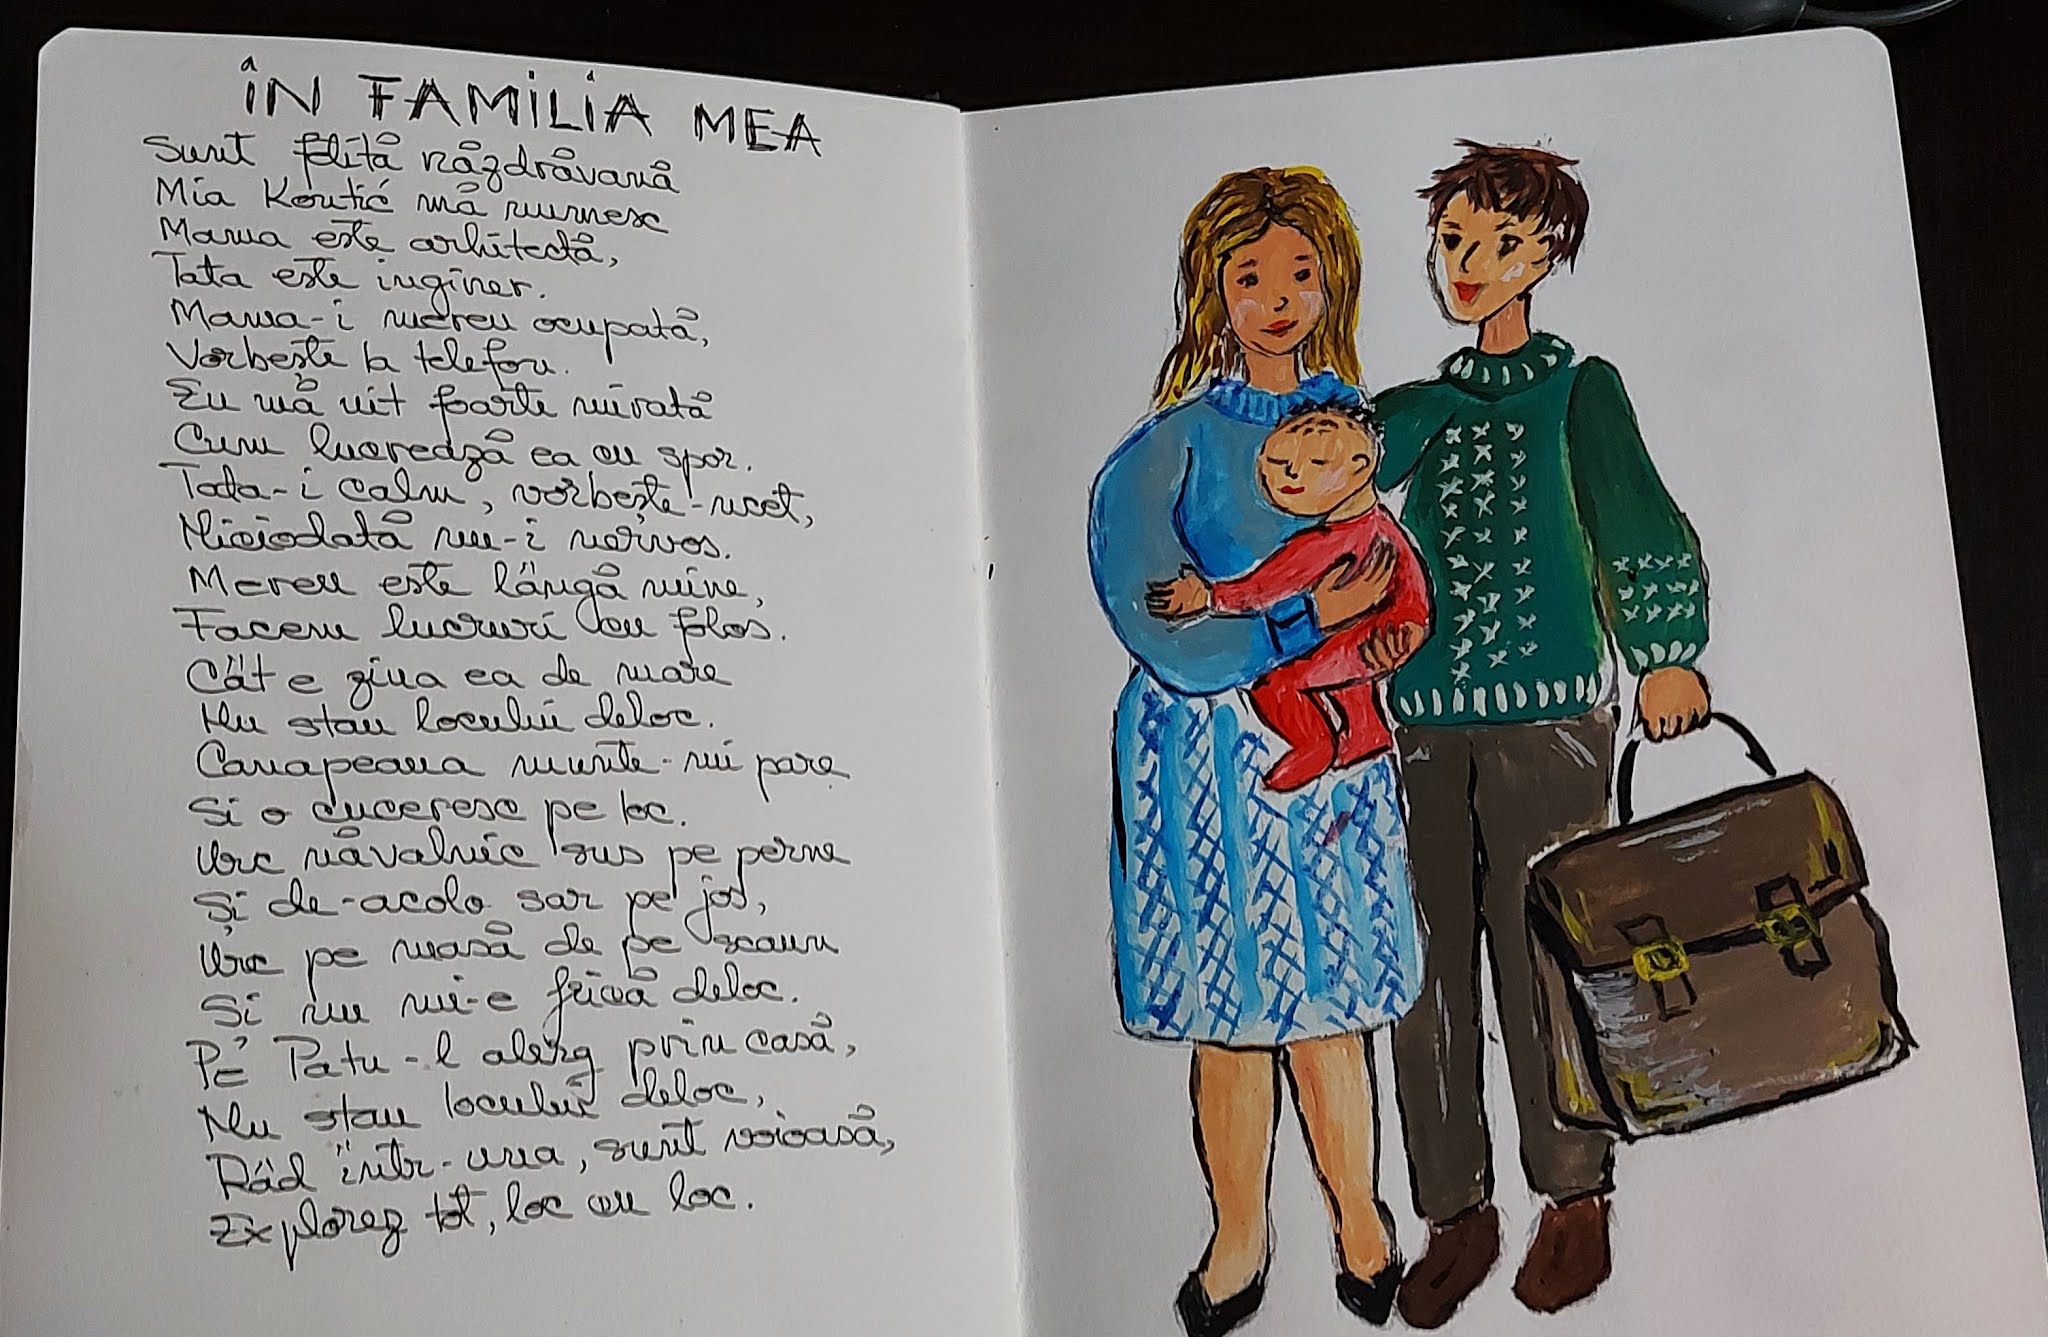 ÎN FAMILIA MEA
Sunt fetită năzdrăvană
Mia Kontić mă numesc
Mama este arhitectă,
Tata este inginer.
Mama-i mereu ocupată,
Vorbește la telefon.
Eu mă uit foarte mirată
Cum lucrează ea cu spor.
Tata-i calm, vorbește-ncet,
Niciodată nu-i nervos.
Mereu este lângă mine,
Facem lucruri cu folos.
Cât e ziua ea de mare
Nu stau locului deloc.
Canapeaua munte-mi pare
Si o cuceresc pe loc.
Urc năvalnic sus pe perne
Și de-acolo sar pe jos,
Urc pe masă de pe scaun
Si nu mi-e frică deloc.
Pe Patu-l alerg prin casă,
Nu stau locului deloc,
Râd într-una, sunt voioasă,
Explorez tot, loc cu loc.